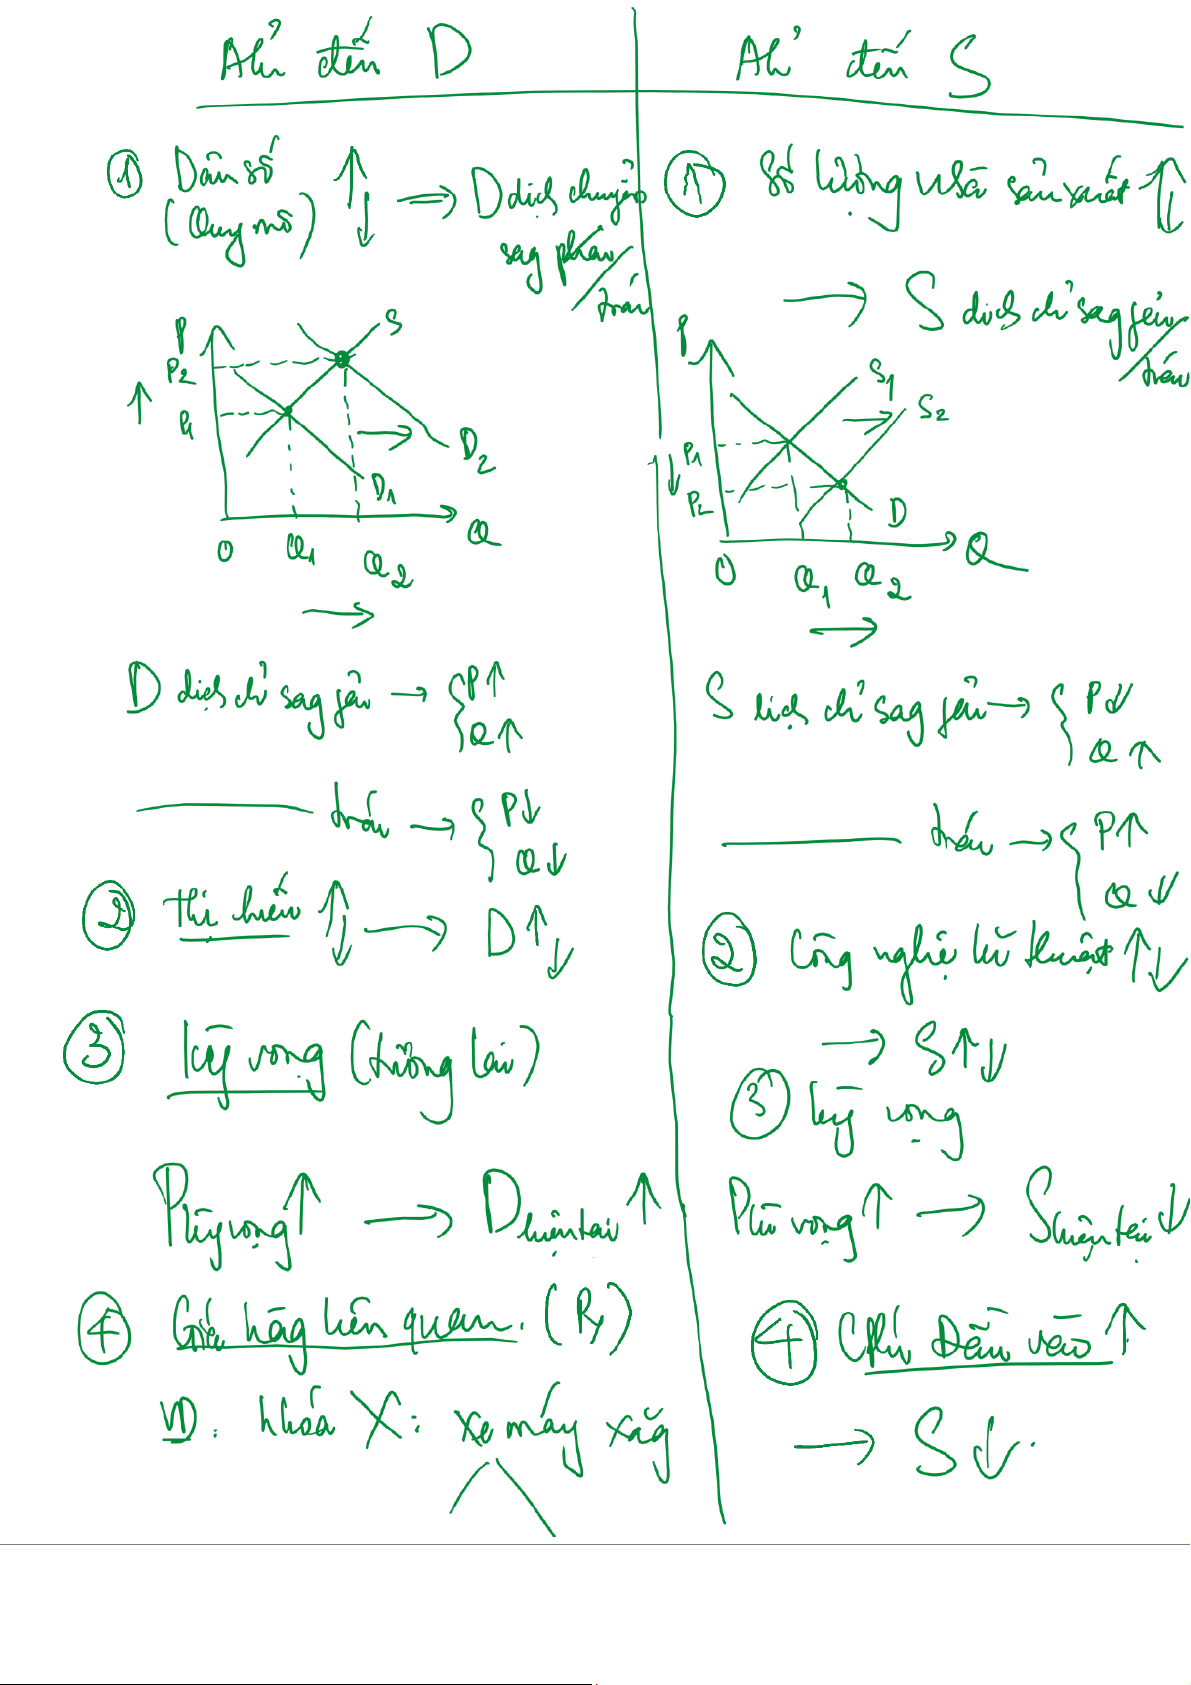 Ahỉ đến D
① Dân số ↑↓ → D dịch chuyển
(Quy mô) sag phải/
trái
P
S
P2
↑
P1
D2
D1
O Q1 Q2 Q
→
D dịch ch' sag phải → { P↑
Q↑
trái → { P↓
Q↓
② Thị hiếu ↑↓ → D↑↓
③ Kỳ vọng (tương lai)
P kỳ vọng ↑ → D hiện tại ↑
④ Giá hàg liên quan. (Py)
VD: hhoá X: xe máy xăg
Ah' đến S
① Số lượng nhà sản xuất ↑↓
→ S dịch ch' sag phải/
trái
P
S1
S2
P1
↓
P2
D
O Q1 Q2 Q
→
S dịch ch' sag phải → { P↓
Q↑
trái → { P↑
Q↓
② Công nghệ kĩ thuật ↑↓
→ S↑↓
③ kỳ vọng
P kỳ vọng ↑ → S hiện tại ↓
④ CPhí Đầu vào ↑
→ S↓.